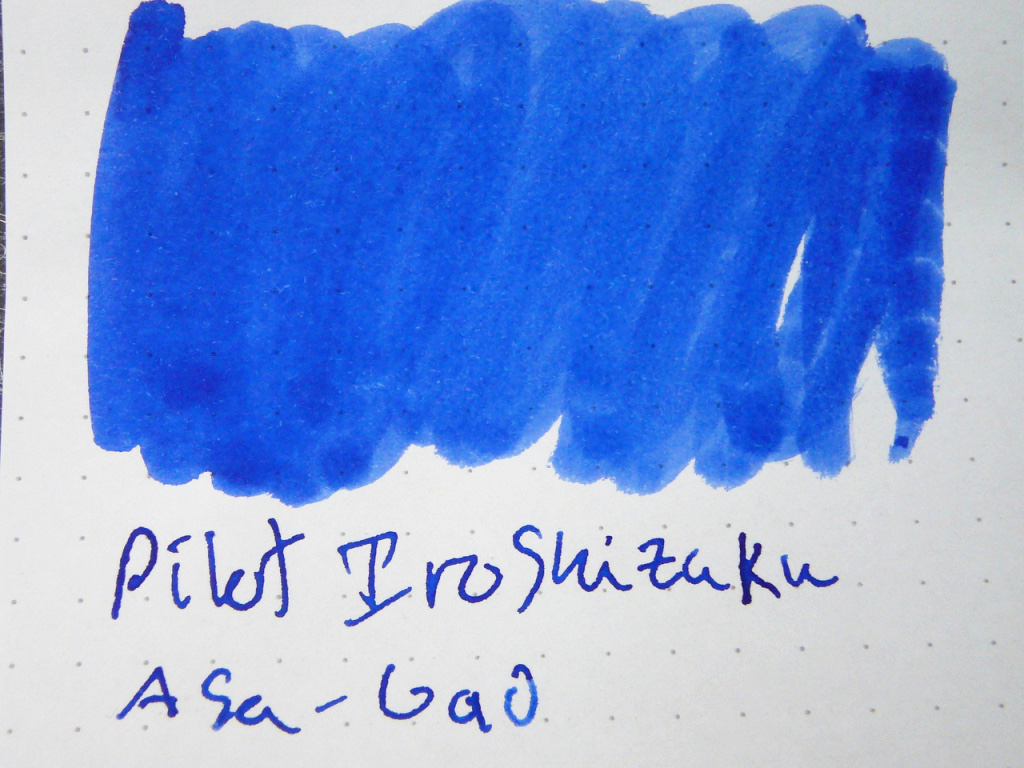 Pilot Iroshizuku
Asa-Gao